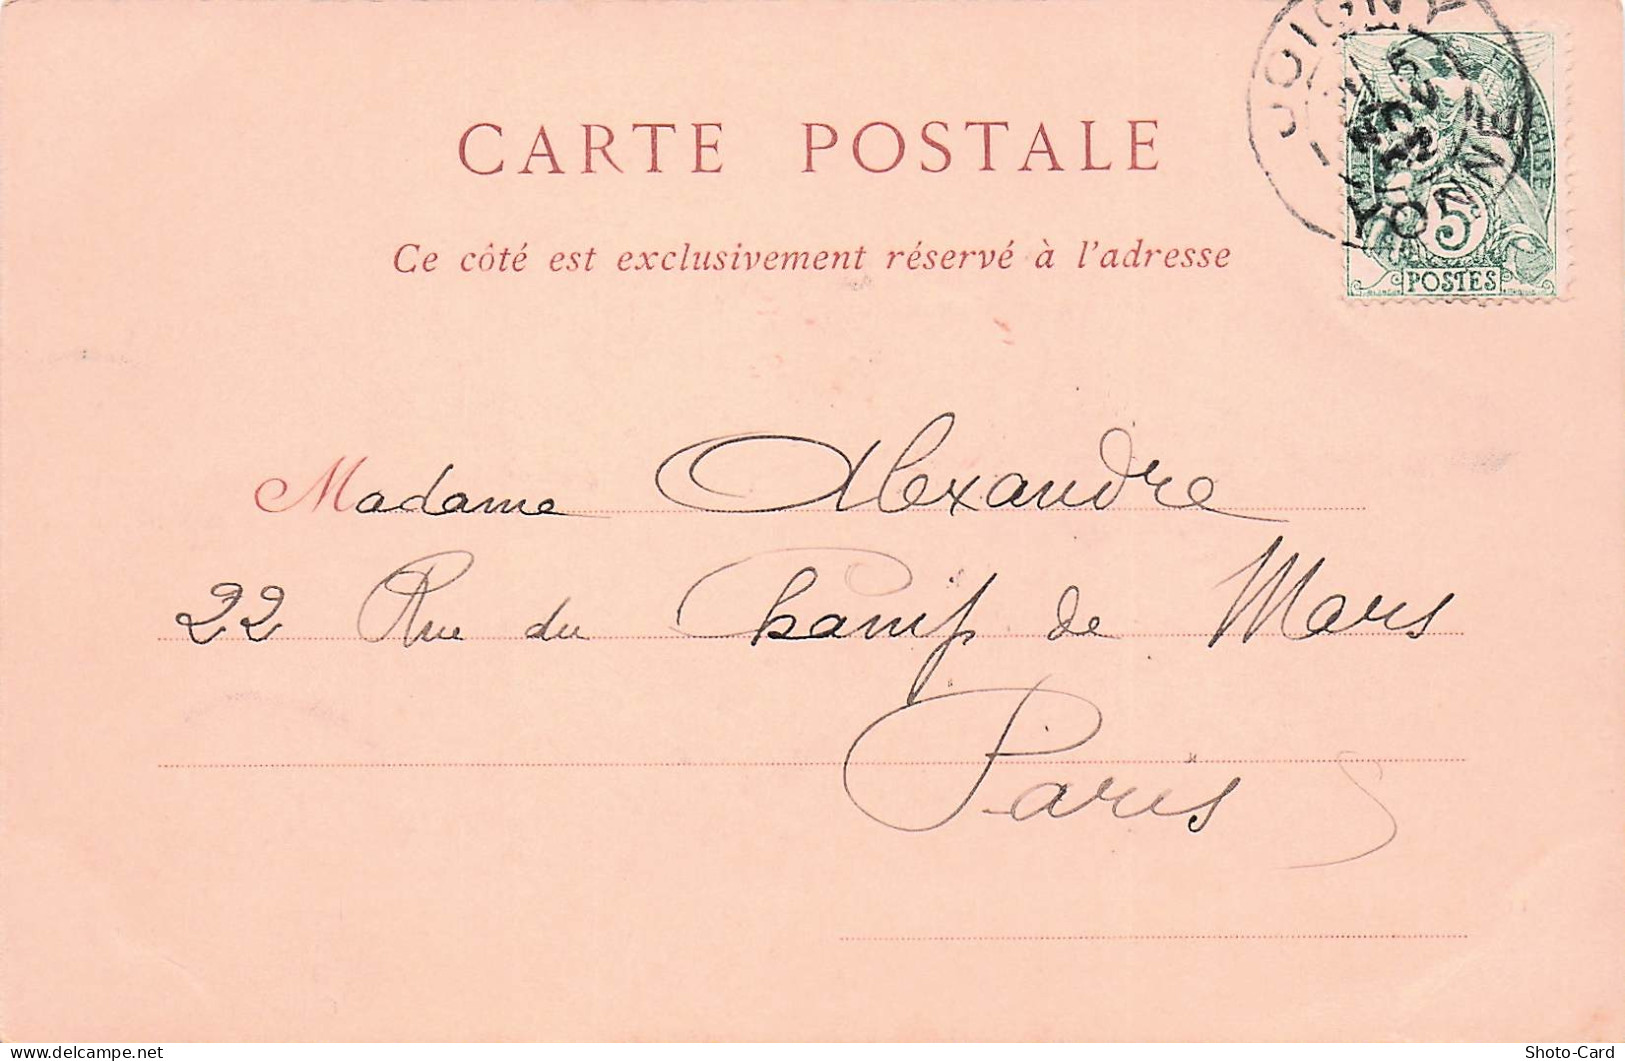 CARTE POSTALE
Ce côté est exclusivement réservé à l'adresse
JOIGNY
YONNE
5
POSTES
Madame Alexandre
22 Rue du Champ de Mars
Paris
delcampe.net
Shoto-Card